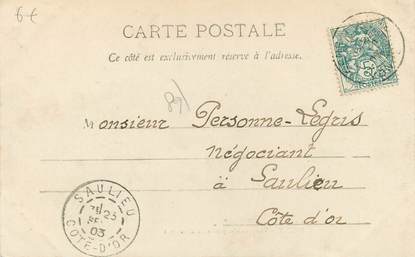 6€
CARTE POSTALE
Ce côté est exclusivement réservé à l'adresse.
Monsieur Personne-Legris
Négociant
à Saulieu
Côte d'or
SAULIEU
23
03
COTE-D'OR